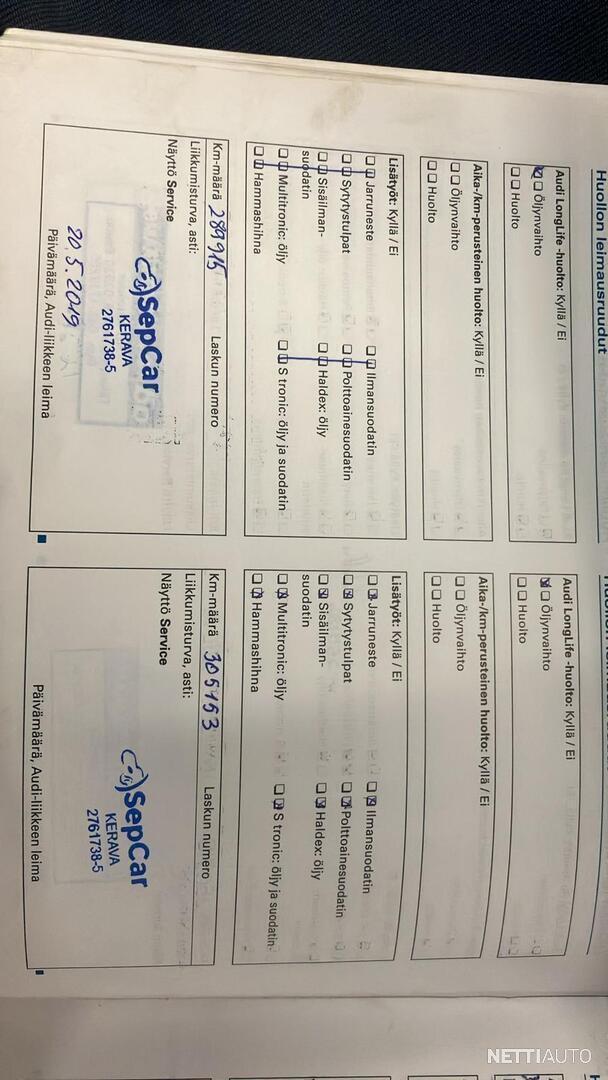 Huollon leimausruudut
Audi LongLife -huolto: Kyllä / Ei
Öljynvaihto
Huolto
Aika-/km-perusteinen huolto: Kyllä / Ei
Öljynvaihto
Huolto
Lisätyöt: Kyllä / Ei
Jarruneste
Ilmansuodatin
Sytytystulpat
Polttoainesuodatin
Sisäilman-
suodatin
Haldex: öljy
Multitronic: öljy
S tronic: öljy ja suodatin
Hammashihna
Km-määrä 289915
Laskun numero
Liikkumisturva, asti:
Näyttö Service
SepCar
KERAVA
2761738-5
20.5.2019
Päivämäärä, Audi-liikkeen leima
Audi LongLife -huolto: Kyllä / Ei
Öljynvaihto
Huolto
Aika-/km-perusteinen huolto: Kyllä / Ei
Öljynvaihto
Huolto
Lisätyöt: Kyllä / Ei
Jarruneste
Ilmansuodatin
Sytytystulpat
Polttoainesuodatin
Sisäilman-
suodatin
Haldex: öljy
Multitronic: öljy
S tronic: öljy ja suodatin
Hammashihna
Km-määrä 305153
Laskun numero
Liikkumisturva, asti:
Näyttö Service
SepCar
KERAVA
2761738-5
Päivämäärä, Audi-liikkeen leima
NETTIAUTO